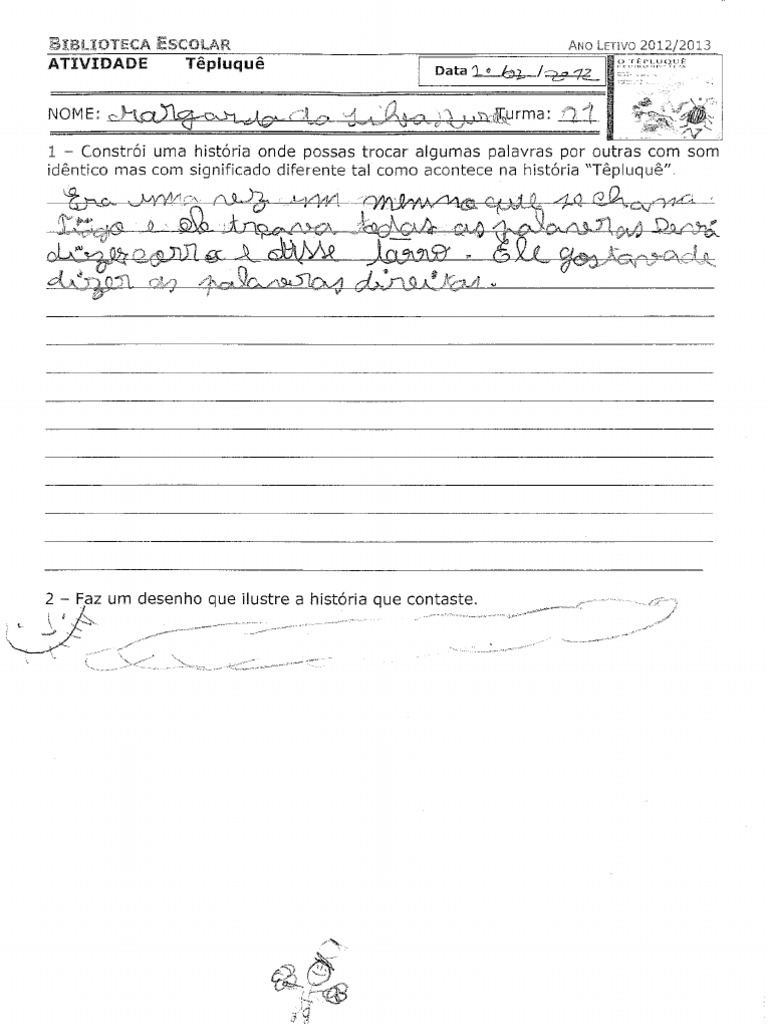 BIBLIOTECA ESCOLAR
ANO LETIVO 2012/2013
ATIVIDADE Têpluquê
Data /2012
O TÊPLUQUÊ
NOME: Margarida da Silva Turma: 21
1 – Constrói uma história onde possas trocar algumas palavras por outras com som
idêntico mas com significado diferente tal como acontece na história “Têpluquê”.
Era uma vez um menino que se chama
Tiago e ele trocava todas as palaveras
dizer carro e disse tarro. Ele gostava de
dizer as palaveras direitas.
2 – Faz um desenho que ilustre a história que contaste.